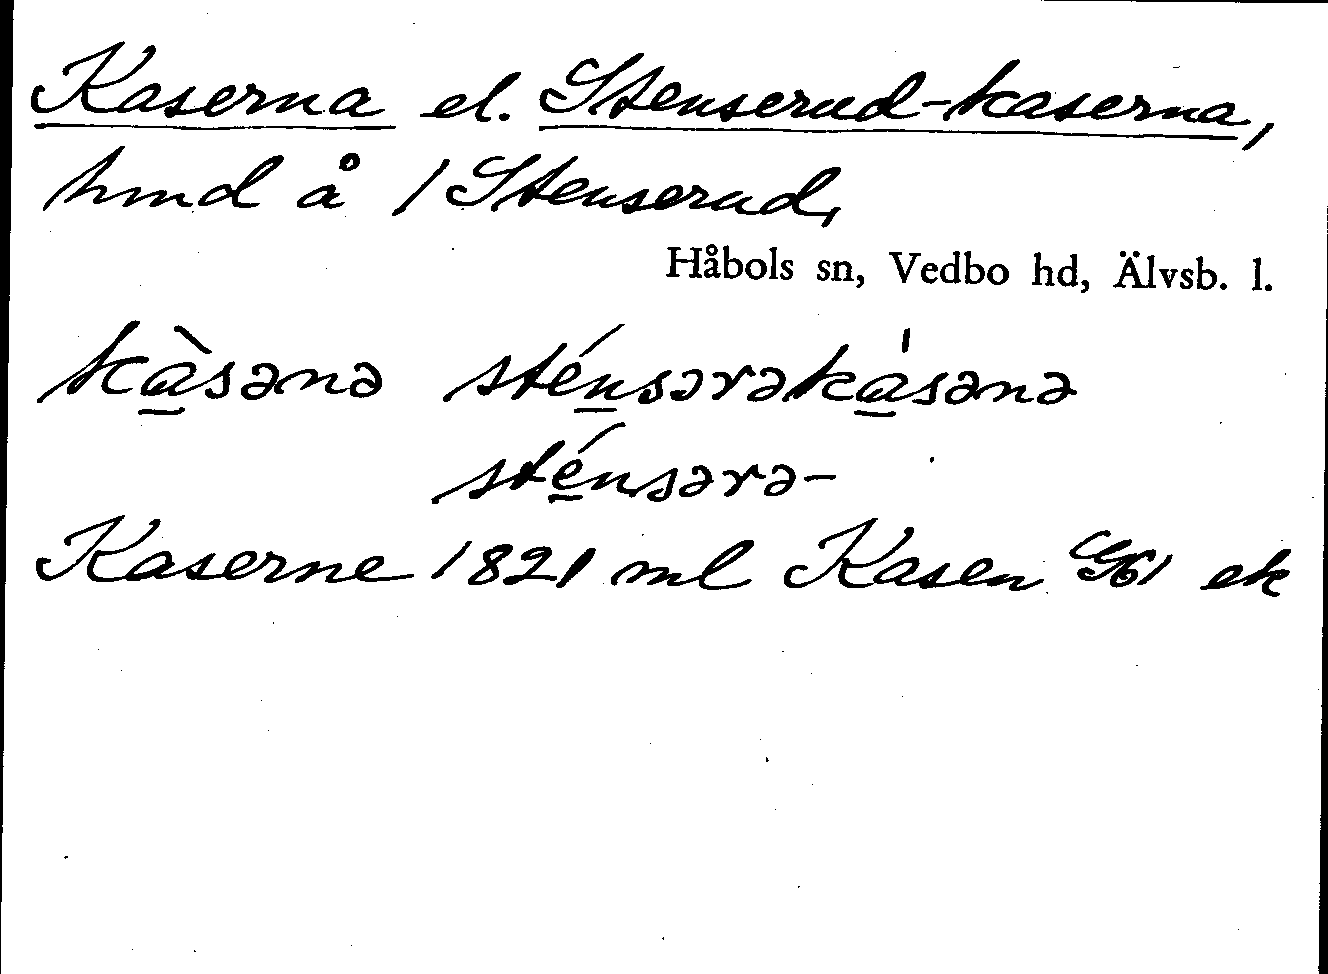 Kaserna el. Stenserud-kaserna,
hmd å /Stenserud,
Håbols sn, Vedbo hd, Älvsb. l.
kàsənə sténsərəkásənə
sténsərə-
Kaserne 1821 ml Kasen G61 ek